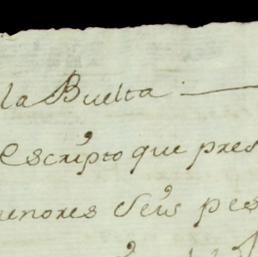 la Buelta
Escripto que pres
menores Seis pes